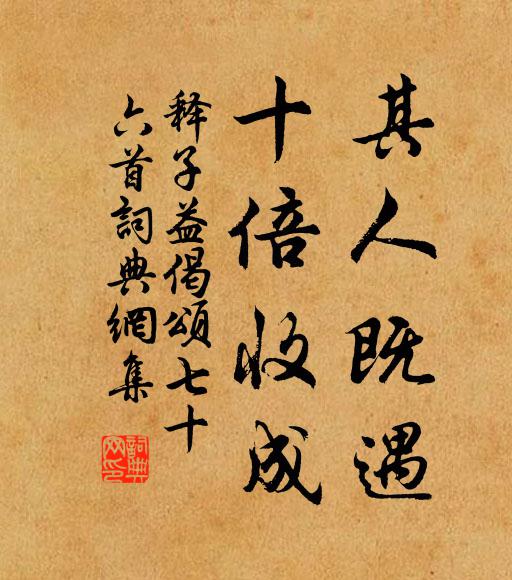 其人既遇
十倍收成
释子益偈頌七十
六首詞典網集
詞典網印